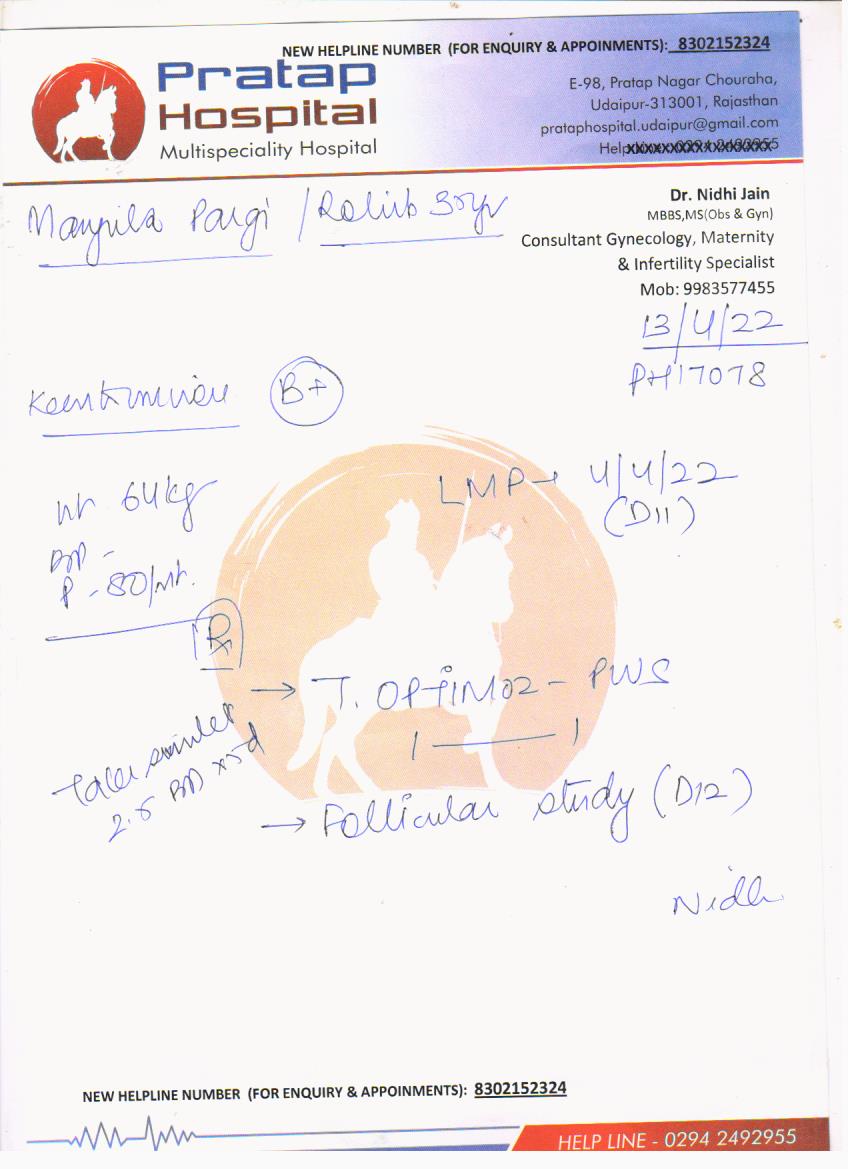 NEW HELPLINE NUMBER (FOR ENQUIRY & APPOINMENTS): 8302152324
Pratap
Hospital
Multispeciality Hospital
E-98, Pratap Nagar Chouraha,
Udaipur-313001, Rajasthan
prataphospital.udaipur@gmail.com
Dr. Nidhi Jain
MBBS,MS(Obs & Gyn)
Consultant Gynecology, Maternity
& Infertility Specialist
Mob: 9983577455
Pargi /
13/4/22
PH17078
B+
wt 64kg
LMP→ 4/4/22
(D11)
BP -
P - 80/mt.
Rx
→ T. OPTIMOZ - PWS
1 — 1
2.5 BD x5d
→ Follicular study (D12)
Nidhi
NEW HELPLINE NUMBER (FOR ENQUIRY & APPOINMENTS): 8302152324
HELP LINE - 0294 2492955